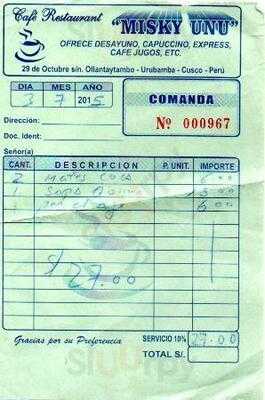 Café Restaurant "MISKY UNU"
OFRECE DESAYUNO, CAPUCCINO, EXPRESS,
CAFE JUGOS, ETC.
29 de Octubre sin. Ollantaytambo - Urubamba - Cusco - Perú
DIA MES AÑO
3 7 2015
COMANDA
Nº 000967
Dirección:
Doc. Ident:
Señor(a)
CANT. DESCRIPCION P. UNIT. IMPORTE
2 Mates coca
1 Sopa
1 6.00
S/ 27.00
Gracias por su Preferencia SERVICIO 10% 27.00
TOTAL S/.